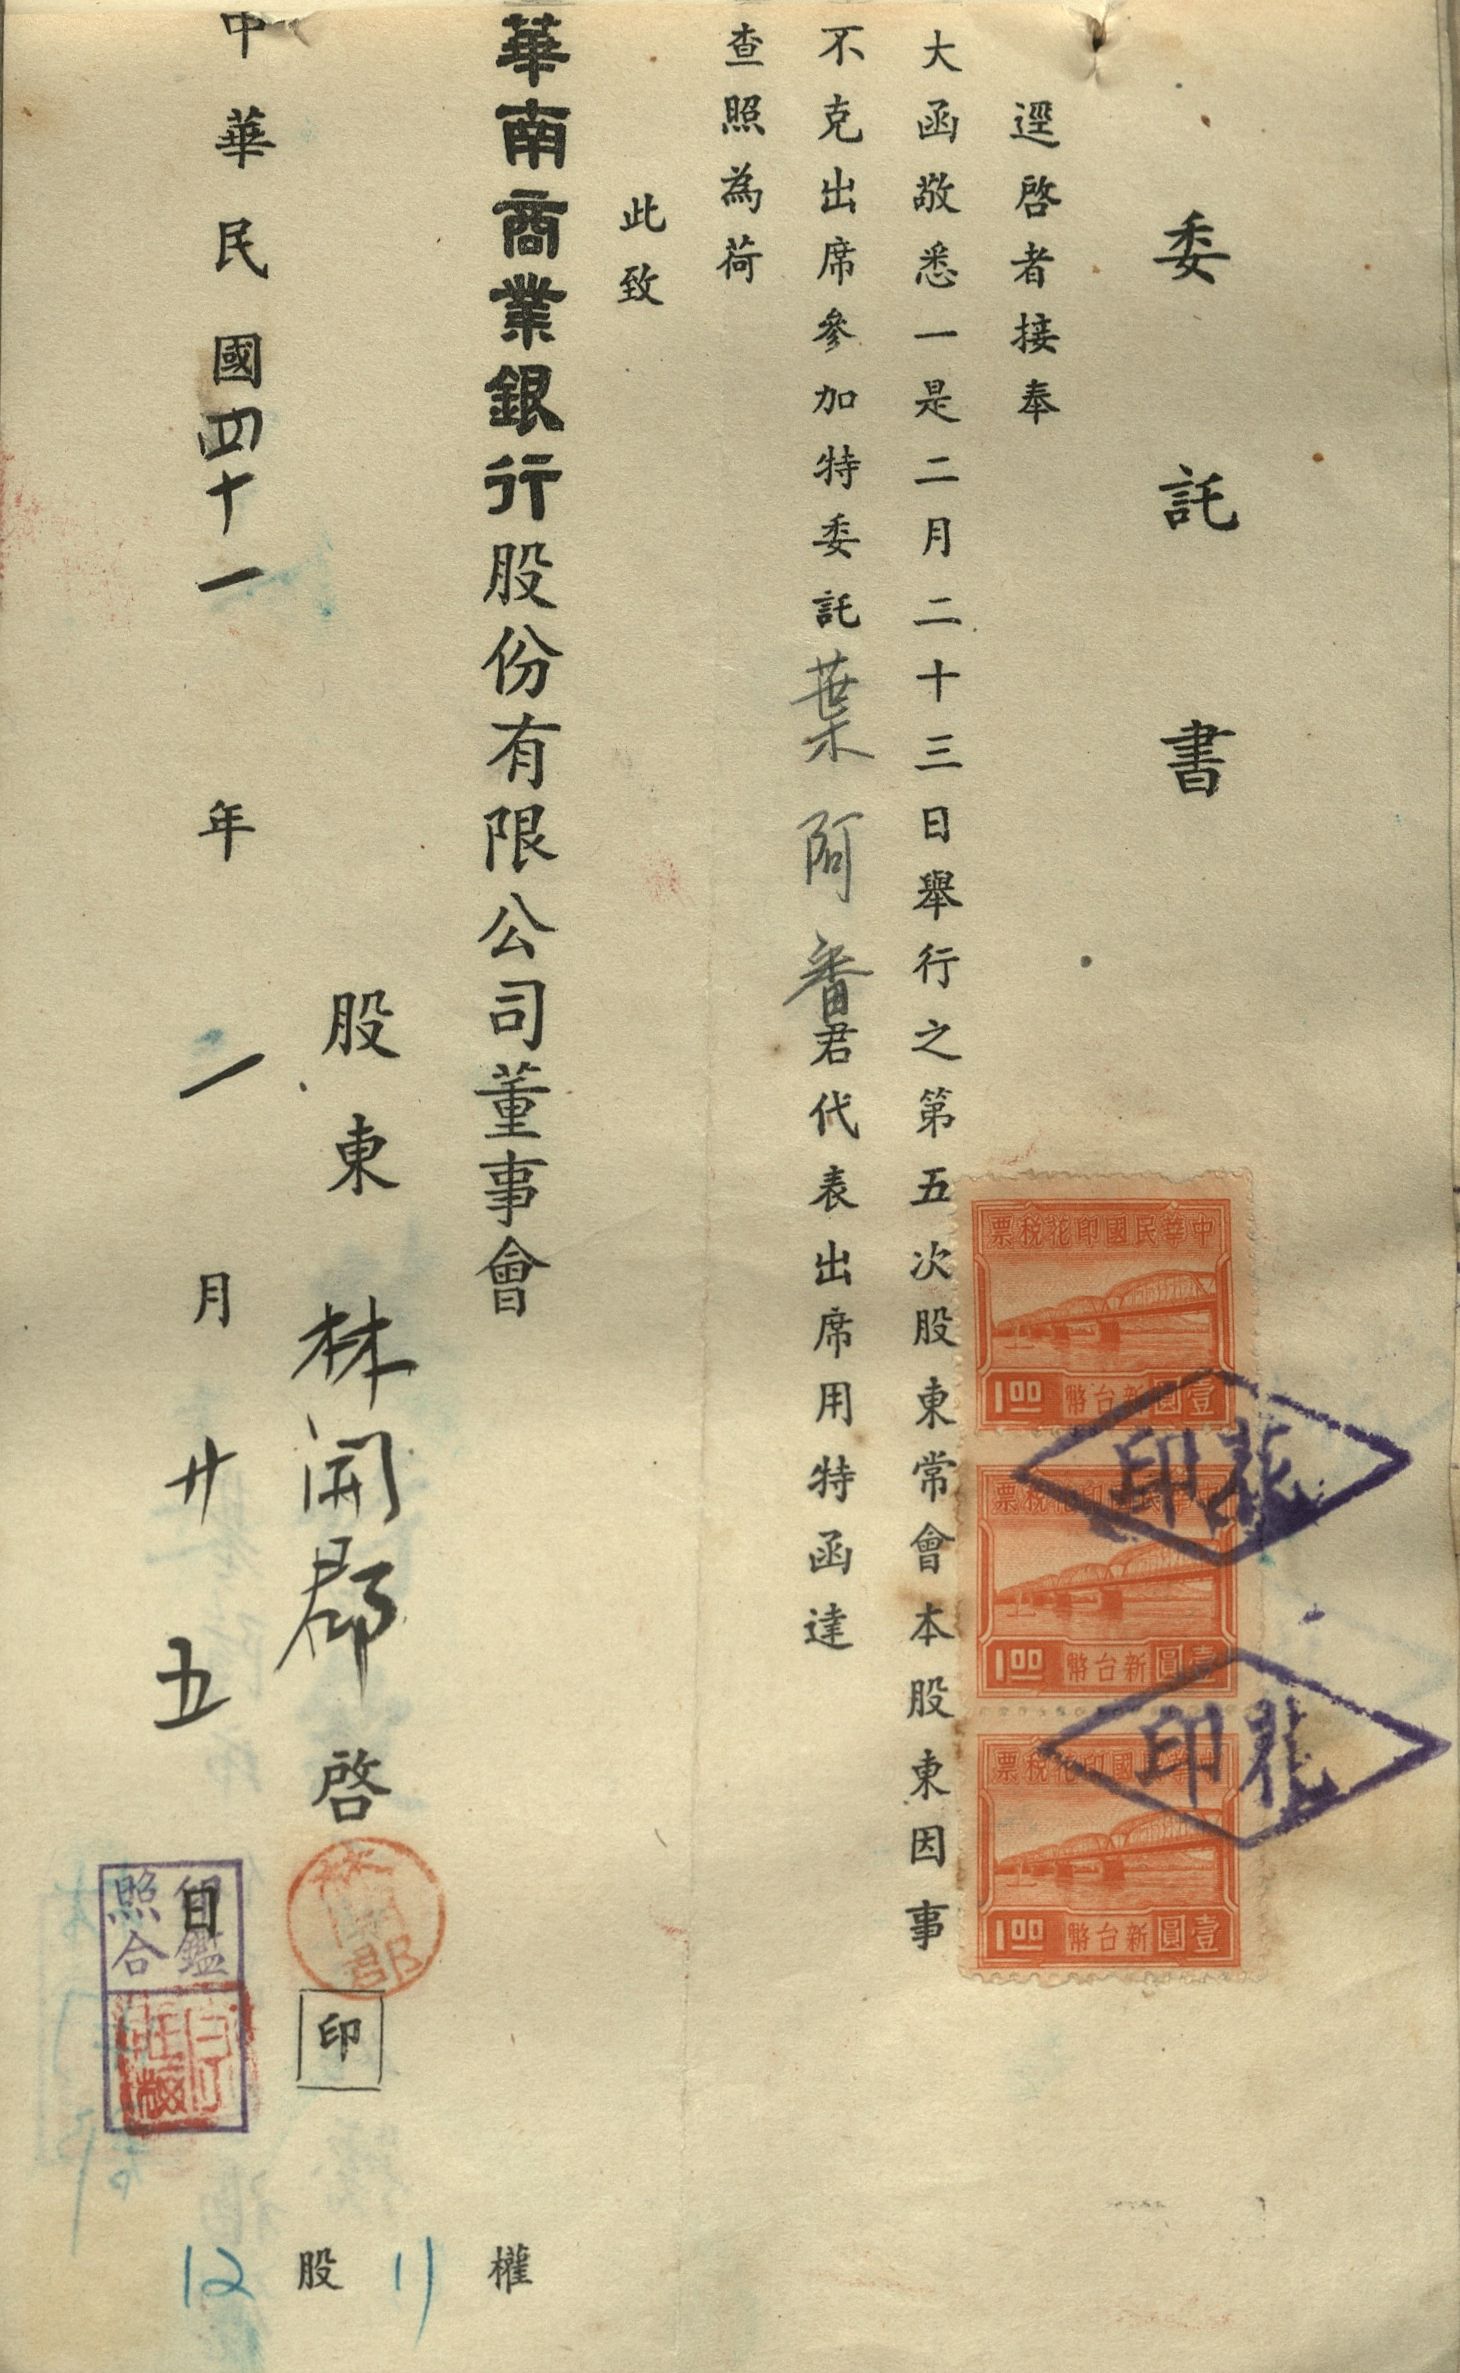 委託書
逕啓者接奉
大函敬悉一是二月二十三日舉行之第五次股東常會本股東因事
不克出席參加特委託葉阿番君代表出席用特函達
查照為荷
此致
華南商業銀行股份有限公司董事會
股東 林開郡 啓 印
中華民國四十一年 一 月 廿五 日
12 股 11 權
中華民國印花稅票
1.00 壹圓新台幣
中華民國印花稅票
1.00 壹圓新台幣
中華民國印花稅票
1.00 壹圓新台幣
花印
花印
林開郡
印鑑
照合